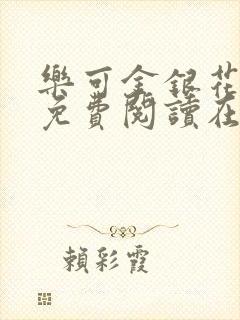 樂可金銀花
免費閱讀在
賴彩霞